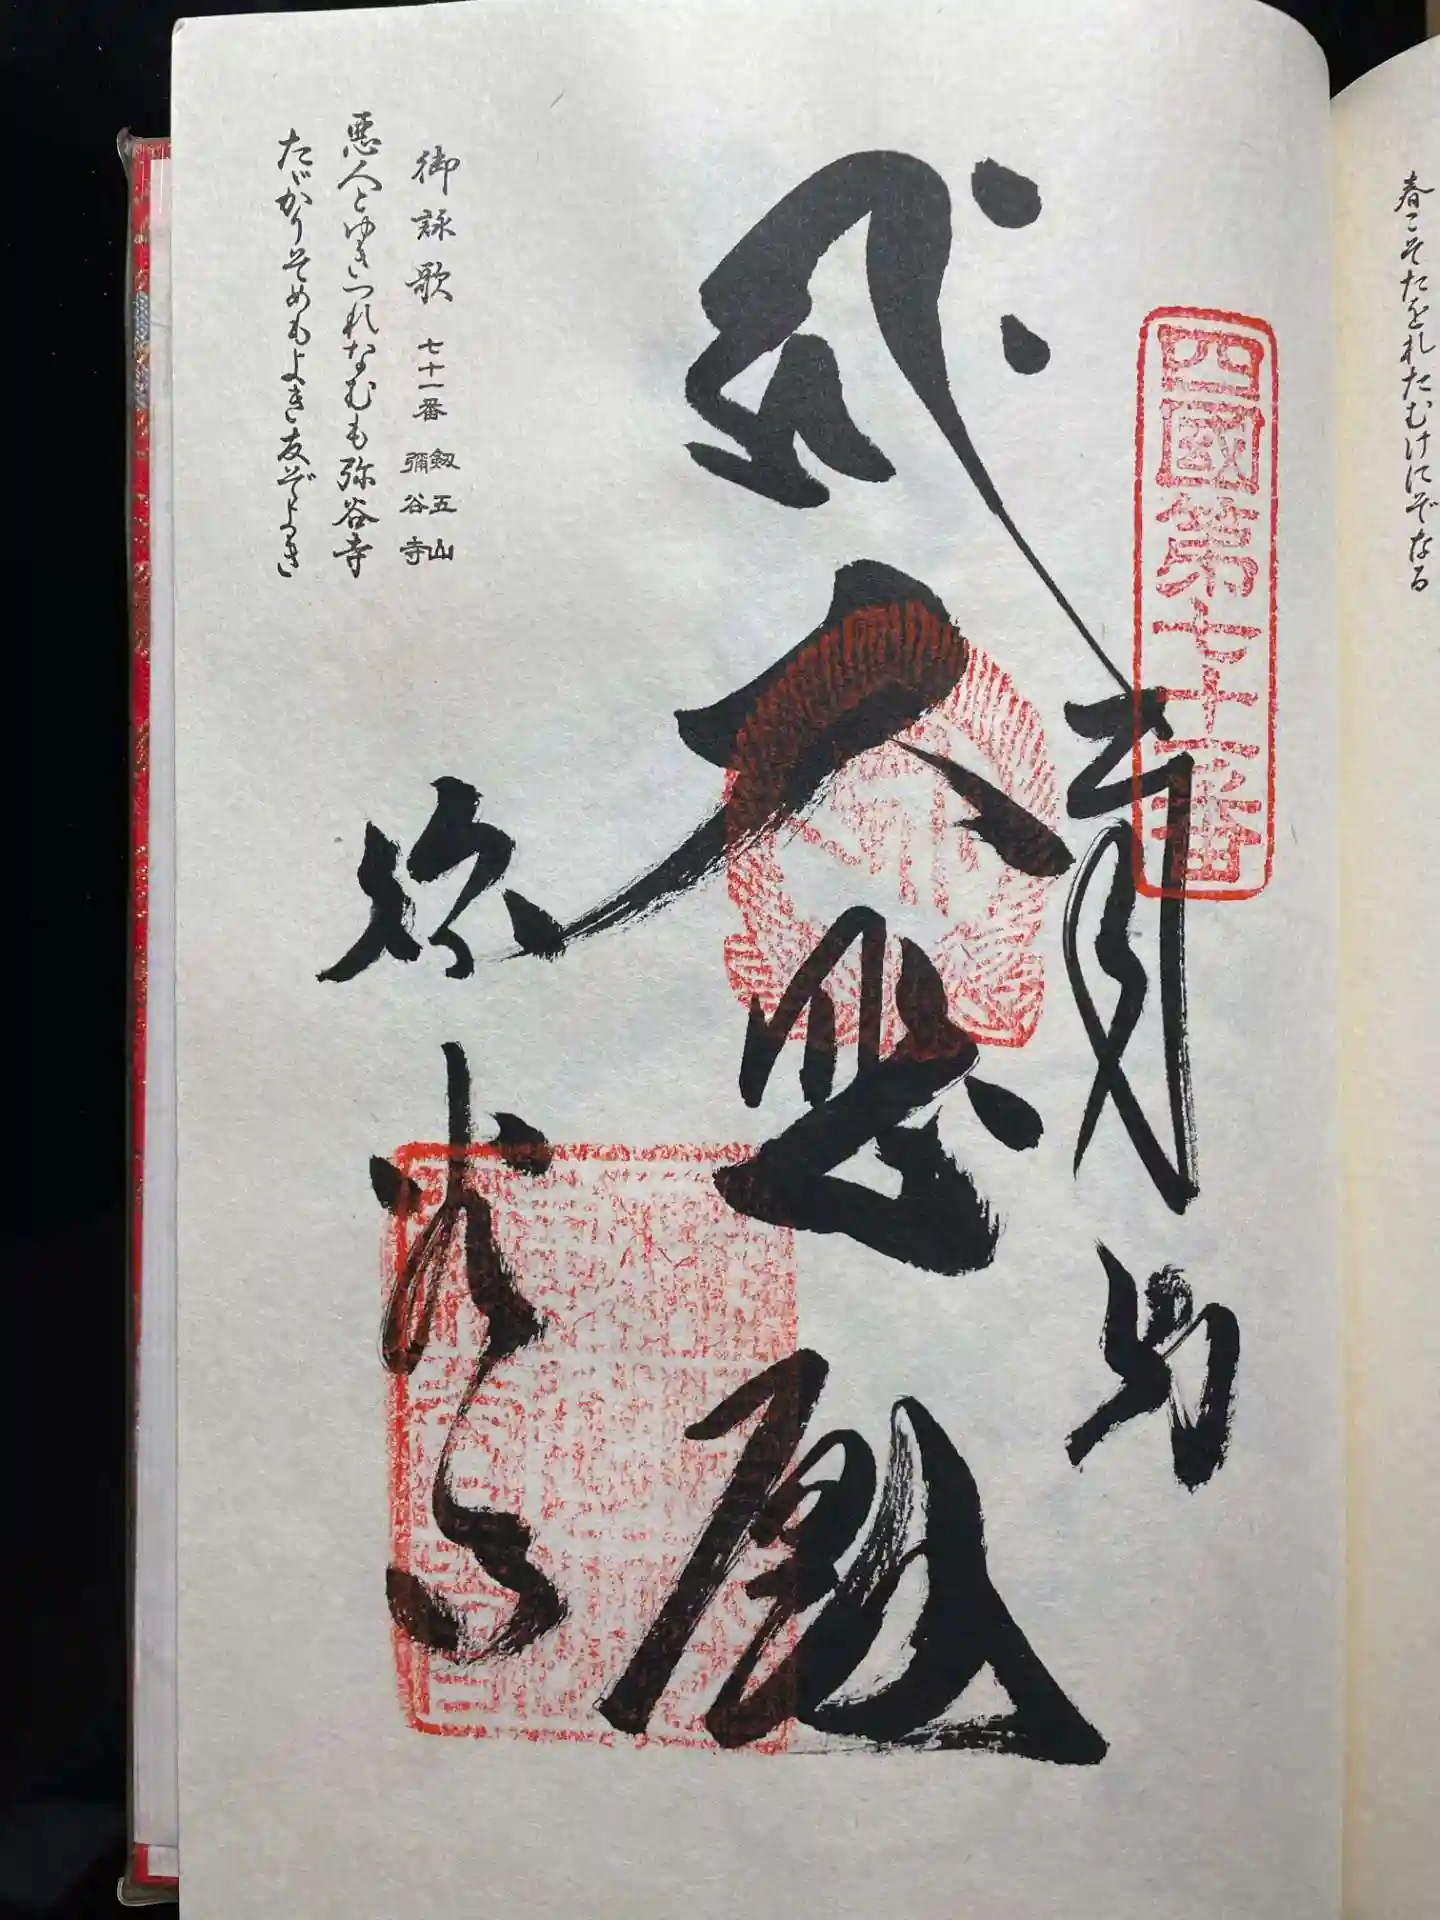 春こそたをれたむけにぞなる
四國第七十一番
奉納
大悲殿
弥谷寺
御詠歌 七十一番 剱五山 彌谷寺
悪人とゆきつれなむも弥谷寺
たゞかりそめもよき友ぞよき